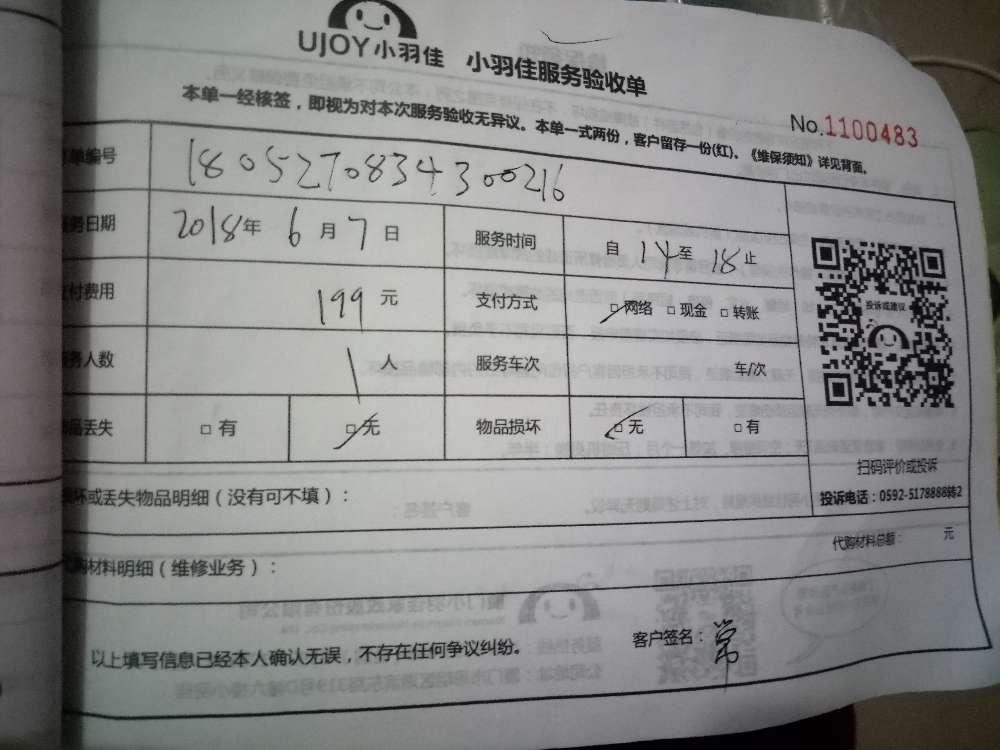 UJOY小羽佳 小羽佳服务验收单
本单一经核签，即视为对本次服务验收无异议。本单一式两份，客户留存一份(红)。《维保须知》详见背面。
No.1100483
单编号 1805270834300216
务日期 2018年 6月 7日 服务时间 自 14 至 18 止
支付费用 199元 支付方式 □网络 □现金 □转账
务人数 1人 服务车次 车/次
品丢失 □有 □无 物品损坏 □无 □有
投诉或建议
扫码评价或投诉
投诉电话：0592-5178888转2
坏或丢失物品明细（没有可不填）：
代购材料明细（维修业务）： 代购材料总额： 元
以上填写信息已经本人确认无误，不存在任何争议纠纷。 客户签名：常